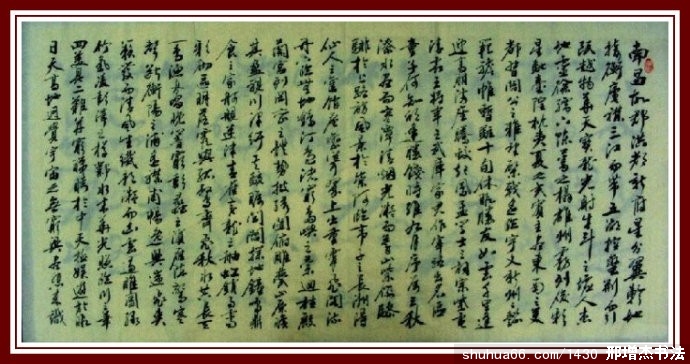 南昌故郡洪都新府星分翼軫地
接衡廬襟三江而帶五湖控蠻荊而引
甌越物華天寶龍光射牛斗之墟人杰
地靈徐孺下陳蕃之榻雄州霧列俊彩
星馳臺隍枕夷夏之交賓主盡東南之美
都督閻公之雅望棨戟遙臨宇文新州之懿
範襜帷暫駐十旬休暇勝友如雲千里逢
迎高朋滿座騰蛟起鳳孟學士之詞宗紫電
清霜王將軍之武庫家君作宰路出名區
童子何知躬逢勝餞時維九月序屬三秋
潦水盡而寒潭清煙光凝而暮山紫儼驂
騑於上路訪風景於崇阿臨帝子之長洲得
仙人之舊館層巒聳翠上出重霄飛閣流
丹下臨無地鶴汀鳧渚窮島嶼之縈迴桂殿
蘭宮列岡巒之體勢披繡闥俯雕甍山原曠
其盈視川澤紆其駭矚閭閻撲地鐘鳴鼎
食之家舸艦迷津青雀黃龍之舳虹銷雨霽
彩徹區明落霞與孤鶩齊飛秋水共長天
一色漁舟唱晚響窮彭蠡之濱雁陣驚寒
聲斷衡陽之浦遙襟甫暢逸興遄飛爽
籟發而清風生纖歌凝而白雲遏睢園綠
竹氣凌彭澤之樽鄴水朱華光照臨川之筆
四美具二難并窮睇眄於中天極娛遊於暇
日天高地迥覺宇宙之無窮興盡悲來識
shuhua66.com/1430 邢增杰书法